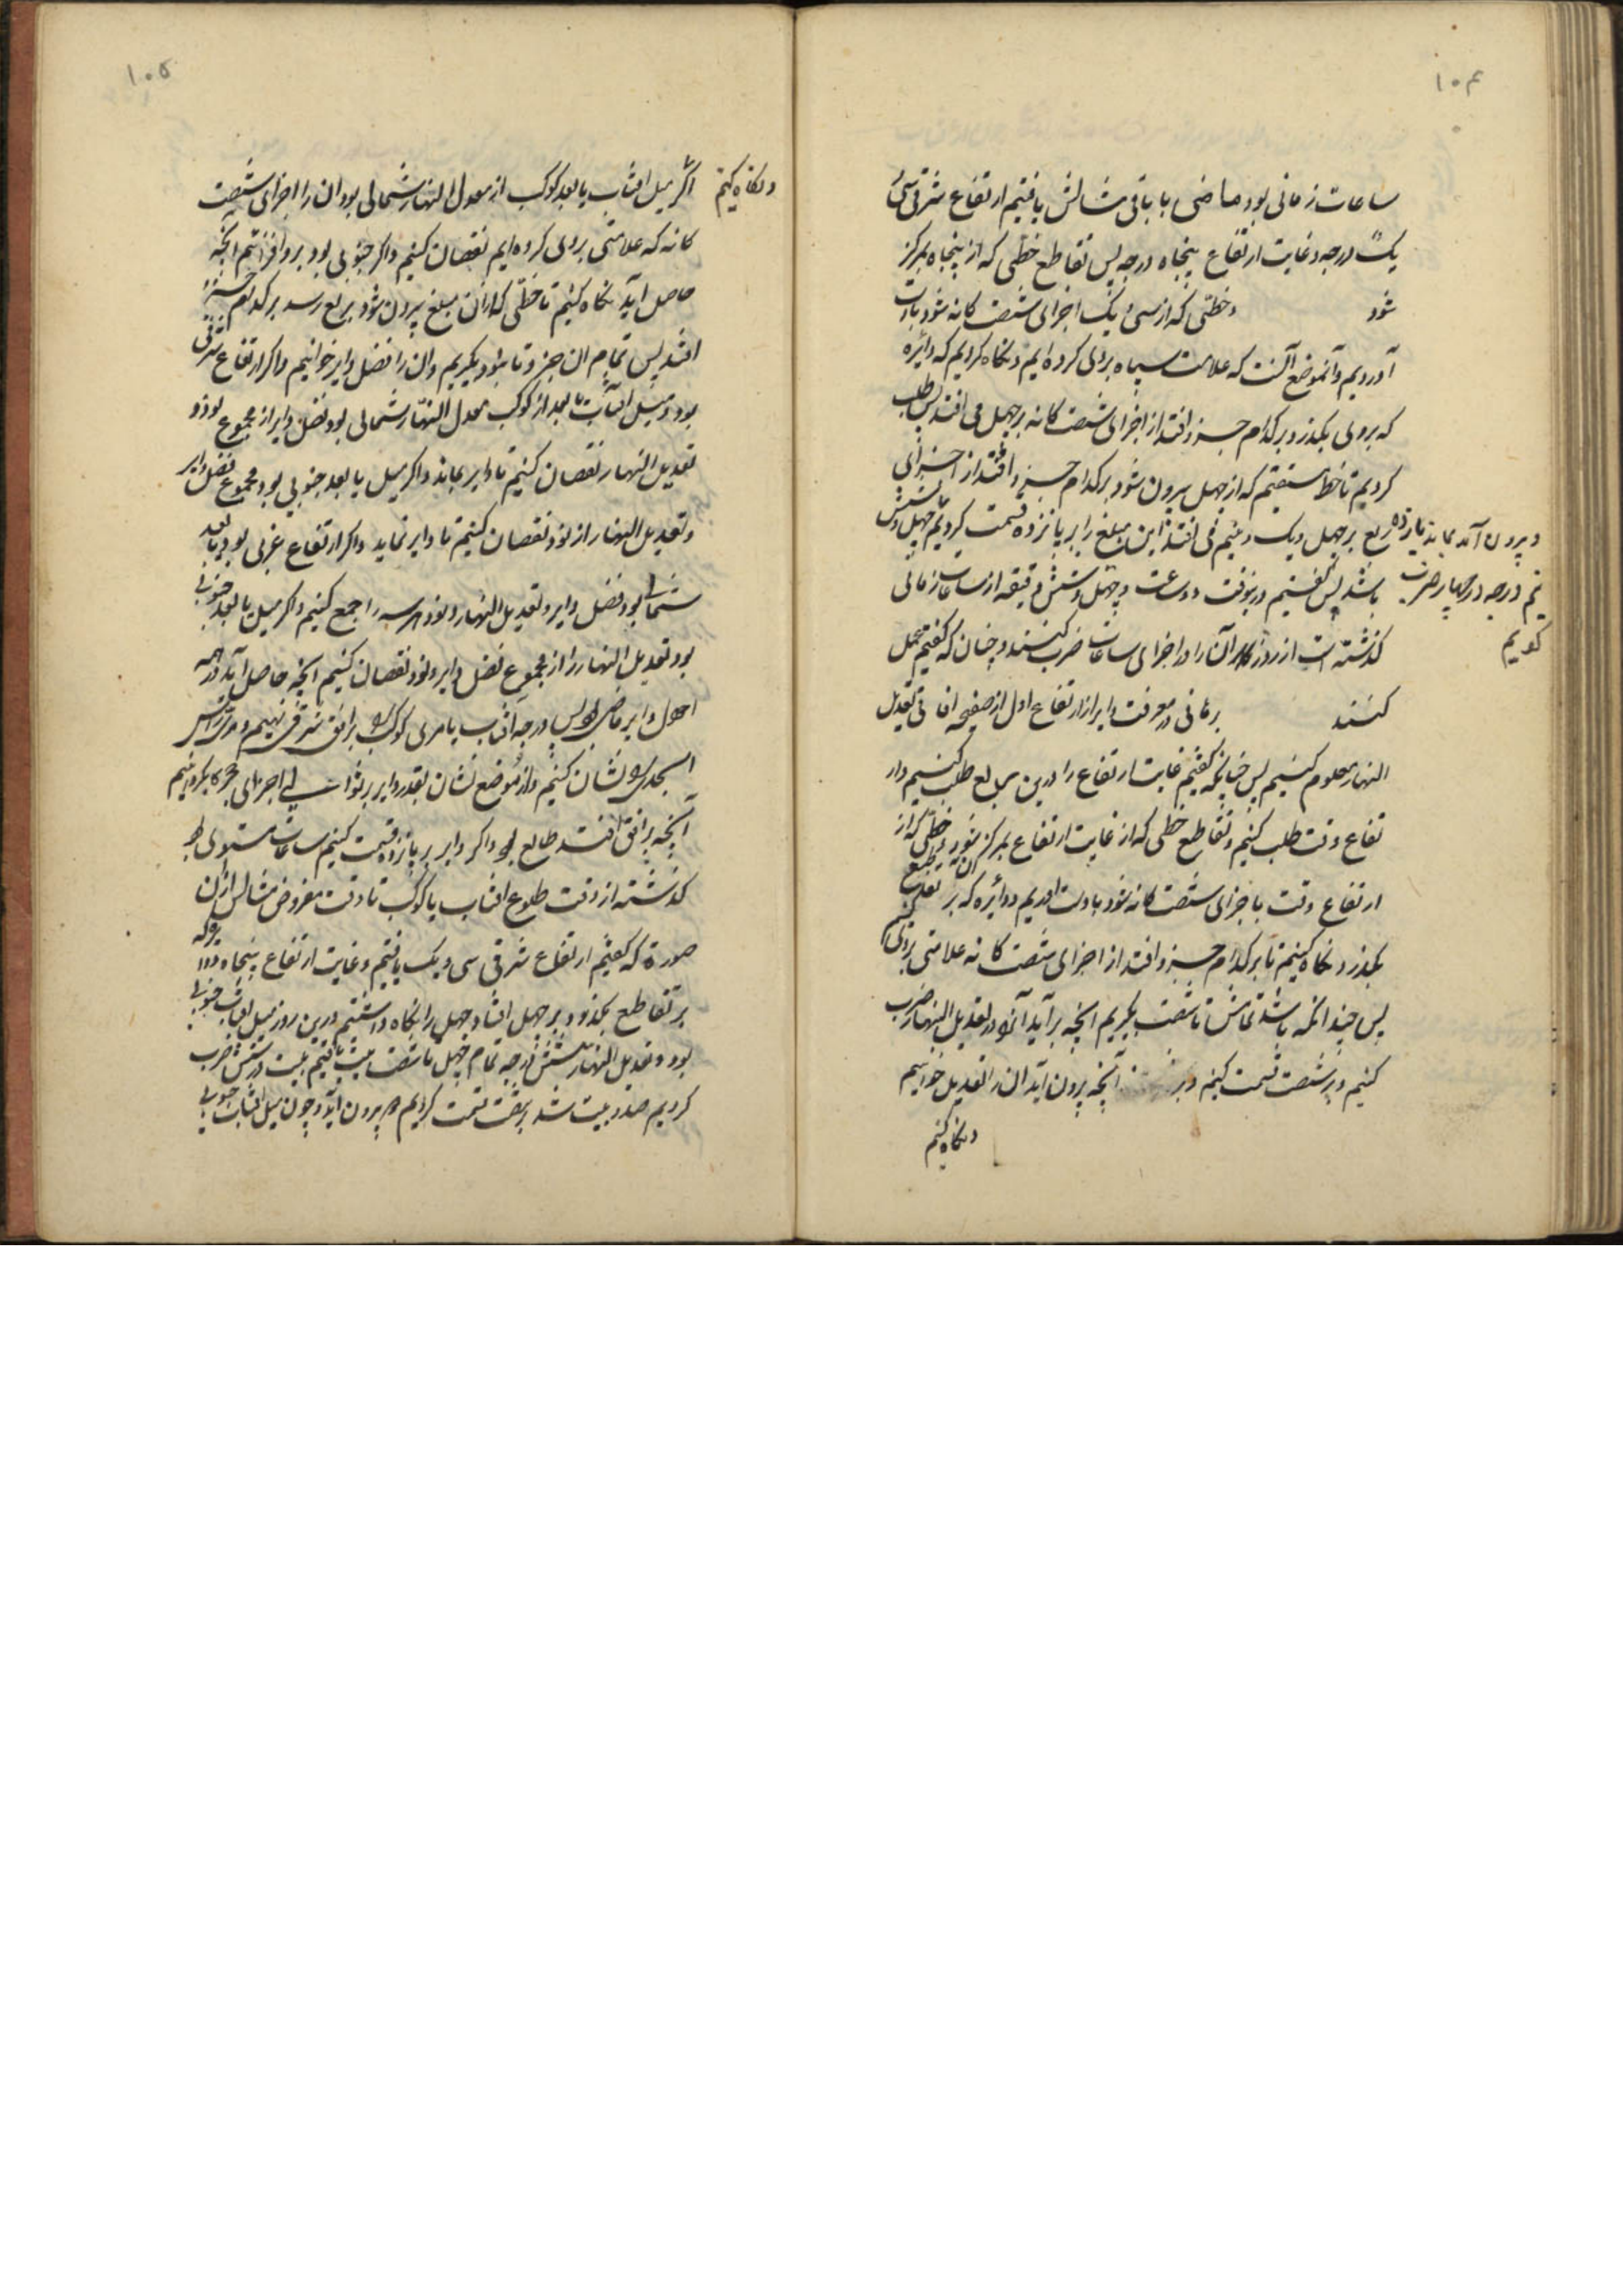 ۱۰۴
ساعات زمانی بود ماضی یا باقی مثالش یافتیم ارتفاع شرقی سی
یک درجه و غایت ارتفاع پنجاه درجه پس تقاطع خطی که از پنجاه بمرکز
شود و خطی که از سی و یک اجزای شصت کانه شود بدست
آوردیم و آنموضع آنست که علامت سیاه بروی کرده ایم و نکاه کردیم که دایره
که بروی بکذرد بر کدام جزو افتد از اجزای شصت کانه بر چهل می افتد پس طلب
کردیم تا خط مستقیم که از چهل بیرون شود بر کدام جزو افتد از اجزای
ربع بر چهل و یک و نیم می افتد این مبلغ را بر پانزده قسمت کردیم چهل و شش
باشد پس کفتیم درینوقت دو ساعت و چهل و شش دقیقه از ساعات زمانی
کذشته است از روز و اکر آن را در اجزای ساعات ضرب کنند و چنان که کفتیم عمل
کنند برهانی در معرفت دایر از ارتفاع اول از صفیحه افاقی تعدیل
النهار معلوم کنیم پس چنانچه کفتیم غایت ارتفاع را درین ربع طلب کنیم و ار
تفاع وقت طلب کنیم و تقاطع خطی که از غایت ارتفاع بمرکز شود و خطی که از
ارتفاع وقت باجزای شصت کانه شود بدست اوریم و دائره که بر ان تقاطع
بکذرد نکاه کنیم تا بر کدام جزو افتد از اجزای شصت کانه علامتی بروی کنیم
پس چند انکه باشد تمامش تا شصت بکیریم انچه برآید آنرا در تعدیل النهار ضرب
کنیم و بر شصت قسمت کنیم آنچه بیرون آید آن را تعدیل خوانیم
و نکاه کنیم
و بیرون آمد بماند یازده
نیم درجه در چهار ضرب
کردیم
۱۰۵
و نکاه کنیم
اکر میل افتاب یا بعد کوکب از معدل النهار شمالی بود ان را از اجزای شصت
کانه که علامتی بروی کرده ایم نقصان کنیم و اکر جنوبی بود برو افزائیم انچه
حاصل اید نکاه کنیم تا خطی که از ان مبلغ بیرون شود بربع رسد بر کدام جزو
افتد پس تمام ان جزو تا بنود بکیریم و ان را فضل دایر خوانیم و اکر ارتفاع شرقی
بود و میل افتاب یا بعد از کوکب معدل النهار شمالی بود فضل دایر از مجموع نود و
تعدیل النهار نقصان کنیم تا دایر بماند و اکر میل یا بعد جنوبی بود مجموع فضل دایر
و تعدیل النهار از نود نقصان کنیم تا دایر بماند و اکر ارتفاع غربی بود یا بعد
شمالی بود فضل دایر و تعدیل النهار و نود هر سه را جمع کنیم و اکر میل یا بعد جنوبی
بود تعدیل النهار را از مجموع فضل دایر و نود نقصان کنیم انچه حاصل آید در همه
احوال دایر ماضی بود پس درجه افتاب یا مری کوکب را بر افق شرقی نهیم و مری راس
الجدی را نشان کنیم و از موضع نشان بقدر دایر بر توالی اجزای حجره بکردانیم
آنچه بر افق افتد طالع بود و اکر دایر بر پانزده قسمت کنیم ساعات مستوی بود
کذشته از وقت طلوع افتاب یا کوکب تا وقت مفروض مثالش از ان
صورة که کفتیم ارتفاع شرقی سی و یک یافتیم و غایت ارتفاع پنجاه و دایره که
بر تقاطع بکذرد بر چهل افتاد چهل را نکاه داشتیم درین روز میل افتاب جنوبی
بود و تعدیل النهار شش درجه تمام چهل تا شصت بیست یافتیم بیست در شش ضرب
کردیم صد و بیست شد بر شصت قسمت کردیم دو بیرون آید و چون میل افتاب جنوبی